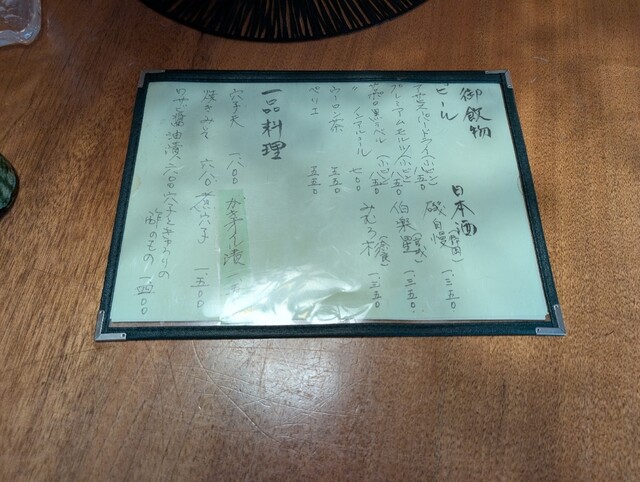 御飲物
ビール
アサヒスーパードライ(小ビン) 八五〇
プレミアムモルツ(小ビン) 八五〇
サッポロ黒ラベル(小ビン) 八五〇
〃 ノンアルコール 七〇〇
ウーロン茶 五五〇
ペリエ 五五〇
日本酒
磯自慢(静岡) 一、三五〇
伯楽星(宮城) 一、三五〇
みむろ杉(奈良) 一、三五〇
一品料理
穴子天 一、八〇〇
焼きみそ 六八〇
わさび醤油漬 六八〇
かきオイル漬
煮穴子 一、五〇〇
穴子ときゅうりの
酢のもの 一、四〇〇